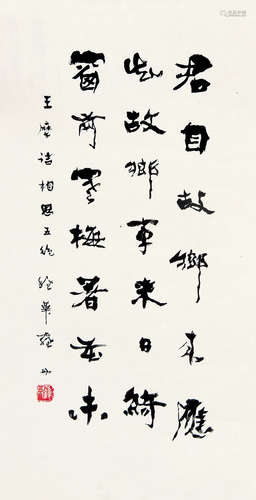 君自故鄉来應
知故鄉事来日綺
窗前寒梅著花未
王摩詰相思五絕